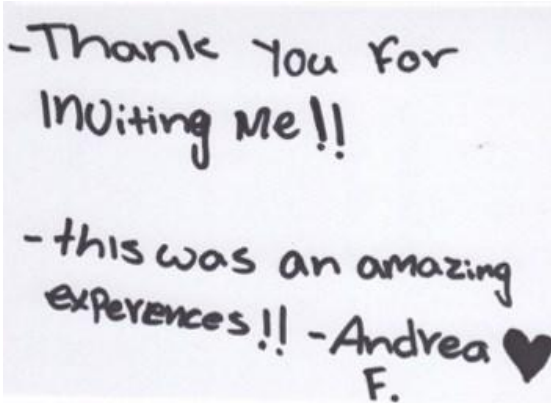 -Thank You For
Inviting Me!!
-this was an amazing
experences!! -Andrea ♥
F.